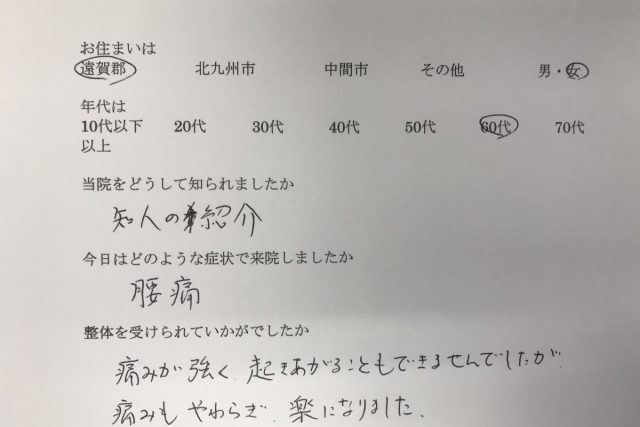 お住まいは
遠賀郡 北九州市 中間市 その他 男・女
年代は
10代以下 20代 30代 40代 50代 60代 70代
以上
当院をどうして知られましたか
知人の紹介
今日はどのような症状で来院しましたか
腰痛
整体を受けられていかがでしたか
痛みが強く、起きあがることもできませんでしたが
痛みもやわらぎ、楽になりました。